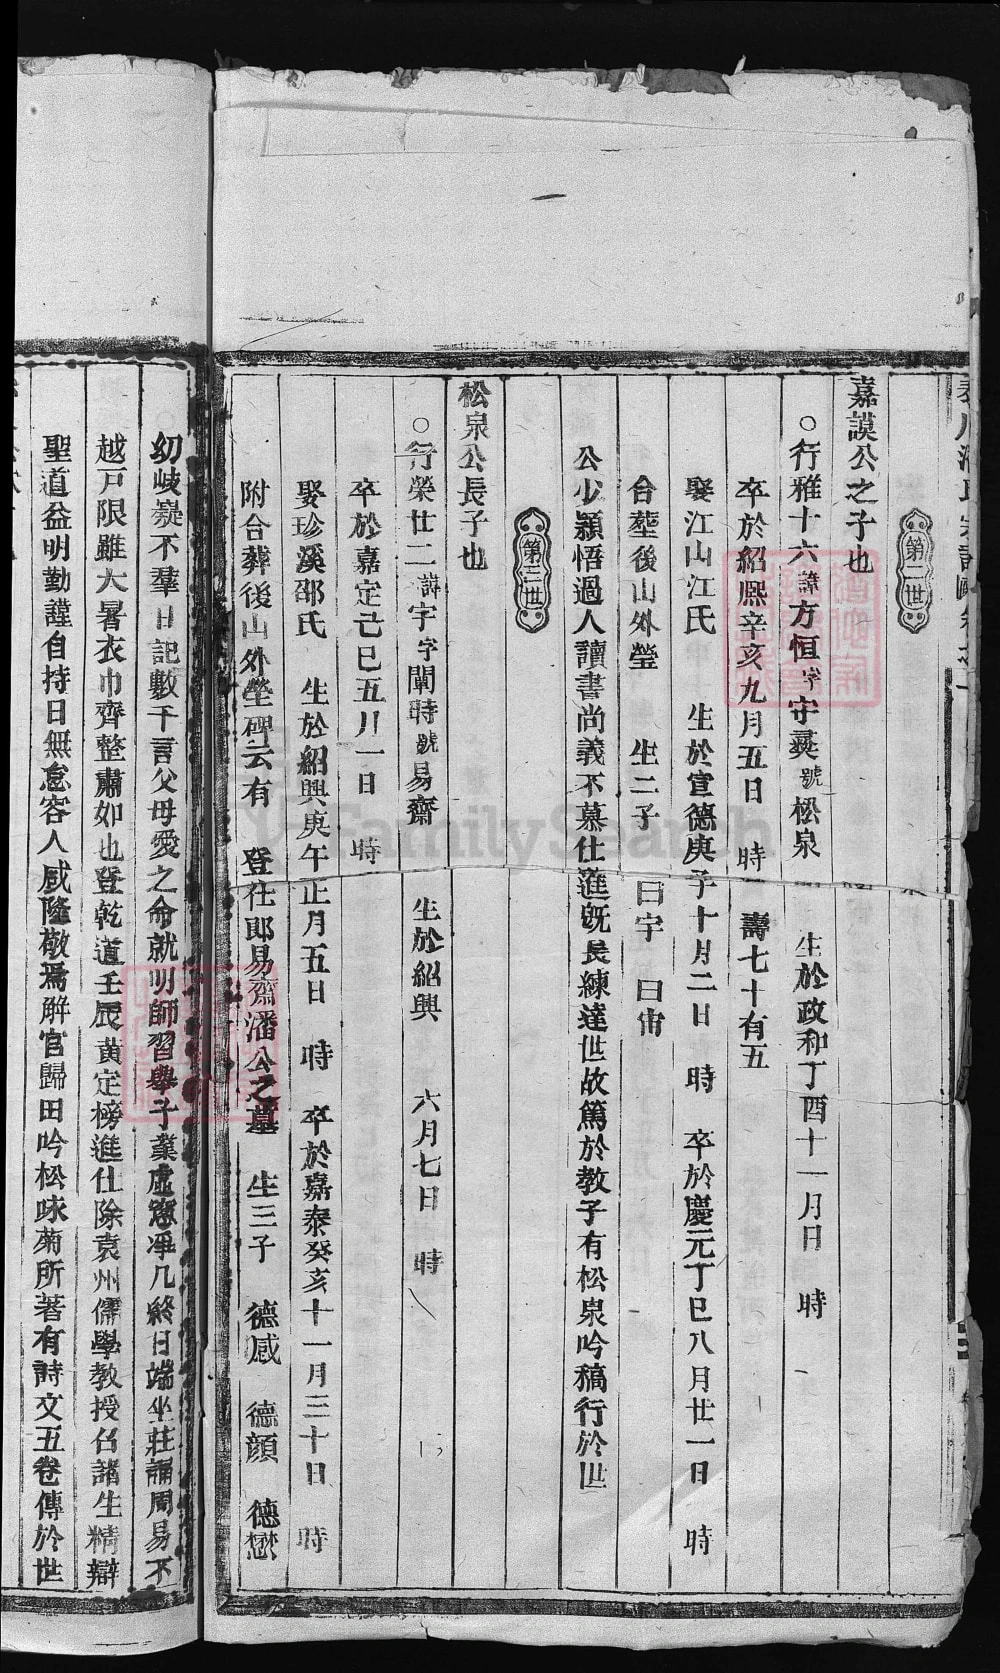 第二世
嘉謨公之子也
○行雅十六諱方恒字宇蓂號松泉 生於政和丁酉十一月日 時
卒於紹熙辛亥九月五日 時 壽七十有五
娶江山江氏 生於宣德庚子十月二日 時 卒於慶元丁巳八月廿一日 時
合塟後山外瑩 生二子 曰宇 曰宙
公少穎悟過人讀書尚義不慕仕進旣長練達世故篤於教子有松泉吟稿行於世
第三世
松泉公長子也
○行榮廿二諱宇字闡時號易齋 生於紹興 六月七日 時
卒於嘉定己巳五月一日 時
娶珍溪邵氏 生於紹興庚午正月五日 時 卒於嘉泰癸亥十一月三十日 時
附合葬後山外塋碑云有 登仕郎易齋潘公之墓 生三子 德感 德顔 德懋
幼岐嶷不羣日記數千言父母愛之命就明師習舉子業虛窓凈几終日端坐莊誦周易不
越戸限雖大暑衣巾齊整肅如也登乾道壬辰黄定榜進仕除袁州儒學教授召諸生精辯
聖道益明勤謹自持日無怠容人咸隆敬焉解官歸田吟松咏菊所著有詩文五卷傳於世
FamilySearch